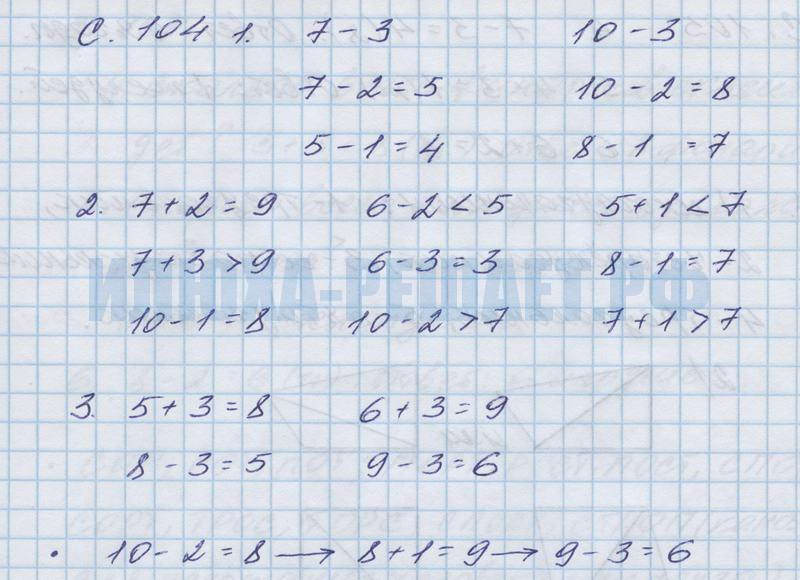 С. 104 1. 7 - 3 10 - 3
7 - 2 = 5 10 - 2 = 8
5 - 1 = 4 8 - 1 = 7
2. 7 + 2 = 9 6 - 2 < 5 5 + 1 < 7
7 + 3 > 9 6 - 3 = 3 8 - 1 = 7
ИЛЮХА-РЕШАЕТ.РФ
10 - 1 = 8 10 - 2 > 7 7 + 1 > 7
3. 5 + 3 = 8 6 + 3 = 9
8 - 3 = 5 9 - 3 = 6
• 10 - 2 = 8 → 8 + 1 = 9 → 9 - 3 = 6